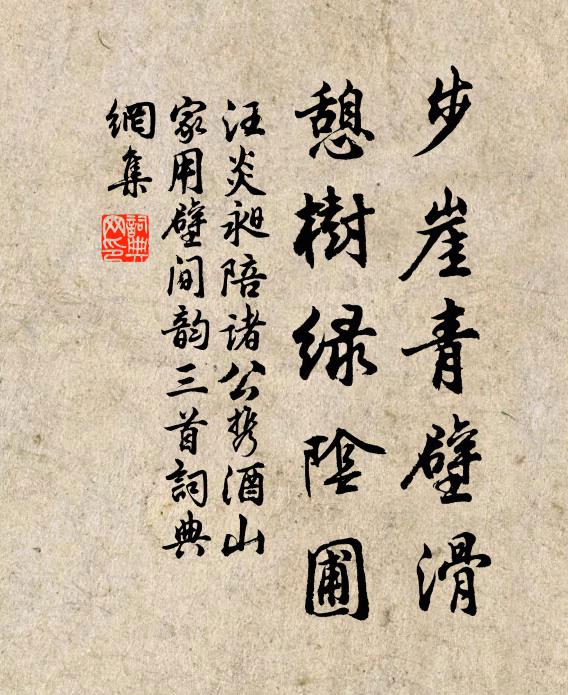 步崖青壁滑
憩樹緑陰圃
汪炎昶陪诸公携酒山
家用壁间韵三首詞典
網集
詞典
网印